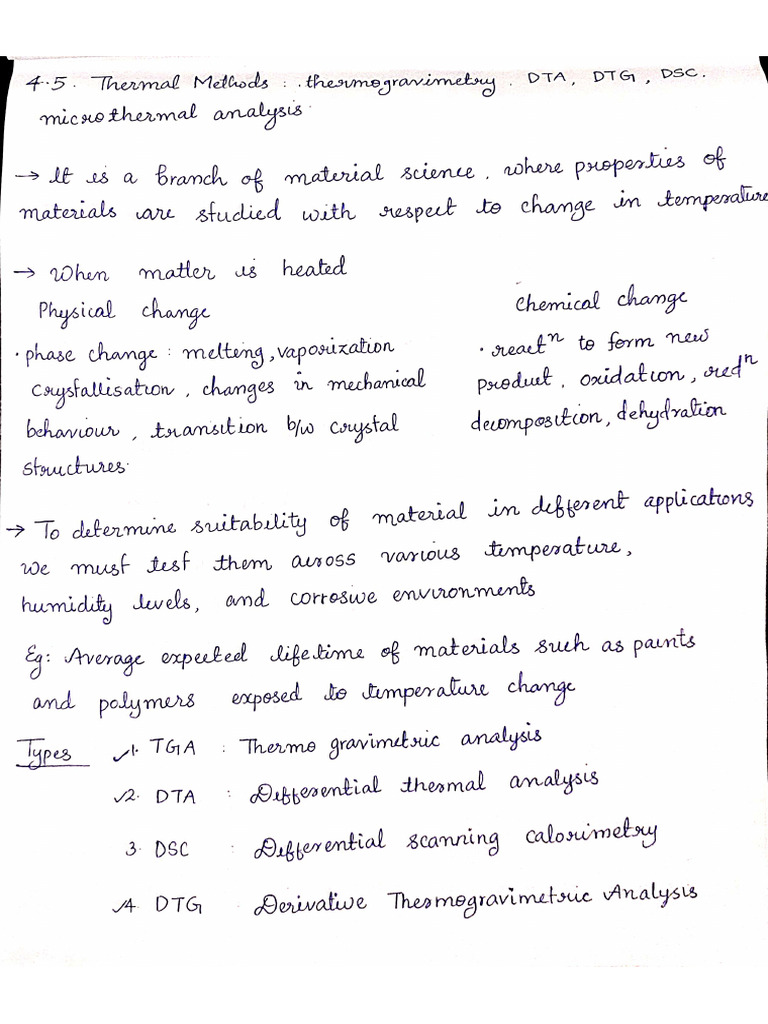 4.5. Thermal Methods : thermogravimetry. DTA, DTG, DSC.
microthermal analysis.
→ It is a branch of material science, where properties of
materials are studied with respect to change in temperature
→ When matter is heated
Physical change
Chemical change
· phase change : melting, vaporization
crystallisation, changes in mechanical
behaviour, transition b/w crystal
structures.
· reactⁿ to form new
product, oxidation, redⁿ
decomposition, dehydration
→ To determine suitability of material in different applications
we must test them across various temperature,
humidity levels, and corrosive environments
Eg: Average expected lifetime of materials such as paints
and polymers exposed to temperature change
Types ✓1. TGA : Thermo gravimetric analysis
✓2. DTA : Differential thermal analysis
3. DSC : Differential scanning calorimetry
✓4. DTG : Derivative Thermogravimetric Analysis